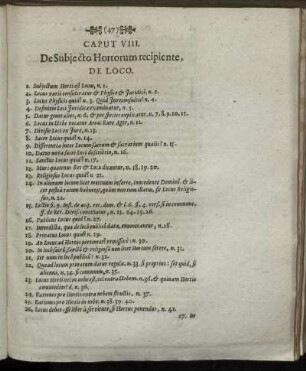 (47)
CAPUT VIII.
De Subjecto Hortorum recipiente,
DE LOCO.
1. Subjectum Horti est Locus, n. 1.
2. Locus variè consideratur & Physicè & Juridicè, n. 2.
3. Locus Physicis quid? n. 3. Quid Jureconsultis? n. 4.
4. Definitio Loci Juridica examinatur, n. 5.
5. Datur genuina, n. 6. & per species explicatur, n. 7. 8. 9. 10. 11.
6. Locus in Urbe vocatur Area: Rure Ager, n. 12.
7. Divisio Loci ex Jure, n. 13.
8. Sacer Locus quid? n. 14.
9. Differentia inter Locum sacrum & sacrarium qualis? n. 15.
10. Datur nova sacri Loci definitio, n. 16.
11. Sanctus Locus quid? n. 17.
12. Muri quare non Res & Loca dicantur sancta, n. 18. 19. 20.
13. Religiosus Locus quid? n. 21.
14. In alienum locum licet mortuum inferre, concedente Dominô, & licet postea ratum habeatur, quàm mortuus illatus, fit Locus Religiosus, n. 22.
15. §. 9. Inst. de acq. rer. dom. & L. 6. §. 4. vers. si in communem ff. de Rer. Divis. conciliatur, n. 23. 24. 25. 26.
16. Publicus Locus quid? n. 27.
17. Interdicta, quae de loco publico data, enumerantur, n. 28.
18. Privatus Locus quid? n. 29.
19. An Locus ad Hortos pertineat omnis? n. 30.
20. In loco sacro, sancto & religioso non licet Hortum facere, n. 31.
21. Ut nec in loco publico: n. 32.
22. Quoad locum privatum datur regula. n. 33. si proprius: sed quid, si alienus, n. 34. si communis, n. 35.
23. Locus Horti vel in urbe est, vel extra Urbem. n. 36. & quinam Hortis commodior? d. n. 36.
24. Rationes pro Hortis extra urbem structis, n. 37.
25. Rationes pro Hortis in urbe. n. 38. 39. 40.
26. Locus debet esse liber à servitute, si Hortus ponendus, n. 41.
27. In